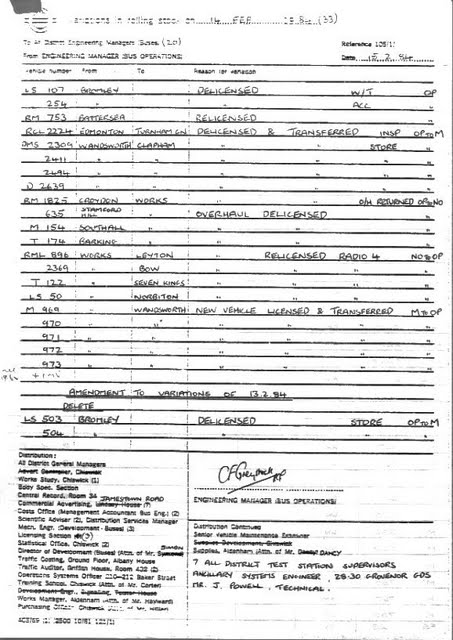 variations in rolling stock on 14 FEB 1984 (33)
To All District Engineering Managers (Buses) (20)
Reference 108/1)
From ENGINEERING MANAGER (BUS OPERATIONS)
Date 15.2.84
Vehicle number From To Reason for variation
LS 107 BROMLEY DELICENSED W/T OP
254 " " ACC "
RM 753 BATTERSEA RELICENSED
RCL 2224 EDMONTON TURNHAM GN DELICENSED & TRANSFERRED INSP OP TO M
DMS 2309 WANDSWORTH CLAPHAM " " STORE "
2411 " " " " " "
2494 " " " " " "
D 2639 " " " " " "
RM 1825 CROYDON WORKS O/H RETURNED OP TO NO
635 STAMFORD HILL " OVERHAUL DELICENSED "
M 154 SOUTHALL " " " "
T 174 BARKING " " " "
RML 896 WORKS LEYTON " RELICENSED RADIO 4 NO TO OP
2369 " BOW " " "
T 122 " SEVEN KINGS " " "
LS 50 " NORBITON " " "
M 969 WANDSWORTH NEW VEHICLE LICENSED & TRANSFERRED M TO OP
970 " " " " "
971 " " " " "
972 " " " " "
973 " " " " "
AMENDMENT TO VARIATIONS OF 13.2.84
DELETE
LS 503 BROMLEY DELICENSED STORE OP TO M
504 " " " "
Distribution:
All District General Managers
Advert Contractor, Chiswick
Works Study, Chiswick (1)
Body Spec. Section
Central Record, Room 34 JAMESTOWN ROAD
Commercial Advertising, House (7)
Costs Office (Management Accountant Bus Eng.) (2)
Scientific Adviser (2), Distribution Services Manager
Mech. Engr. (Development - Buses) (3)
Licensing Section (3)
Statistical Office, Chiswick (2)
Director of Development (Buses) (Attn. of Mr.
Traffic Costing, Ground Floor, Albany House
Traffic Auditor, Griffith House, Room 402 (2)
Operations Systems Officer 210-212 Baker Street
Training School, Chiswick (Attn. of Mr. Carter)
Development Engr.
Works Manager, Aldenham (Attn. of Mr. Hayward)
Purchasing Officer, Chiswick (Attn. of Mr.
ENGINEERING MANAGER (BUS OPERATIONS)
Distribution Continued
Senior Vehicle Maintenance Examiner
Supplies Development, Chiswick
Supplies, Aldenham (Attn. of Mr. DANCY
7 ALL DISTRICT TEST STATION SUPERVISORS
ANCILLARY SYSTEMS ENGINEER, 28-30 GROVENOR GDS
MR. J. POWELL, TECHNICAL.